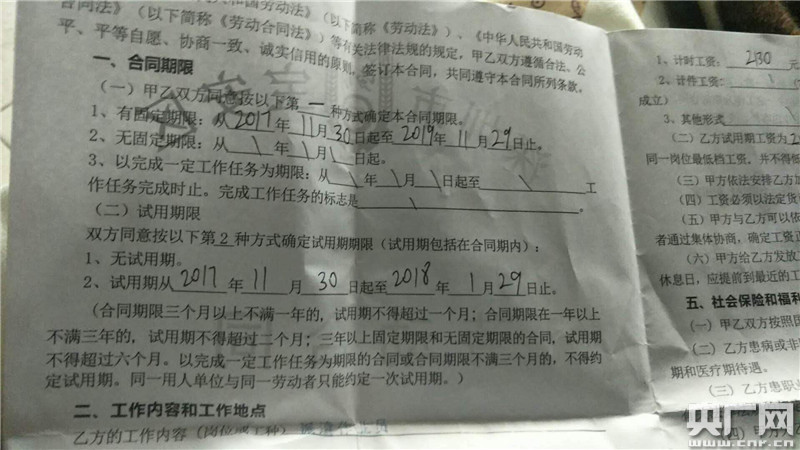 共和国劳动法》(以下简称《劳动法》)、《中华人民共和国劳动
合同法》(以下简称《劳动合同法》)等有关法律法规的规定,甲乙双方遵循合法、公
平、平等自愿、协商一致、诚实信用的原则,签订本合同,共同遵守本合同所列条款。
一、合同期限
(一)甲乙双方同意按以下第 一 种方式确定本合同期限。
1、有固定期限:从 2017 年 11 月 30 日起至 2019 年 11 月 29 日止。
2、无固定期限:从 \ 年 \ 月 \ 日起。
3、以完成一定工作任务为期限:从 \ 年 \ 月 \ 日起至 \ 工
作任务完成时止。完成工作任务的标志是 \ 。
(二)试用期限
双方同意按以下第 2 种方式确定试用期期限(试用期包括在合同期内):
1、无试用期。
2、试用期从 2017 年 11 月 30 日起至 2018 年 1 月 29 日止。
(合同期限三个月以上不满一年的,试用期不得超过一个月;合同期限在一年以上
不满三年的,试用期不得超过二个月;三年以上固定期限和无固定期限的合同,试用期
不得超过六个月。以完成一定工作任务为期限的合同或合同期限不满三个月的,不得约
定试用期。同一用人单位与同一劳动者只能约定一次试用期。)
二、工作内容和工作地点
乙方的工作内容(岗位或工种)
1、计时工资: 2130 元
2、计件工资: \
成立)
3、其他形式
(二)乙方试用期工资为
同一岗位最低档工资,并不得低
(三)甲方依法安排乙方加
(四)工资必须以法定货
(五)甲方与乙方可以依
者通过集体协商,确定工资正
(六)甲方给乙方发放工
休息日,应提前到最近的工
五、社会保险和福利
(一)甲乙双方按照国
(二)乙方患病或非
期和医疗期待遇。
(三)乙方患职
(四)甲方为乙
央广网
www.cnr.cn